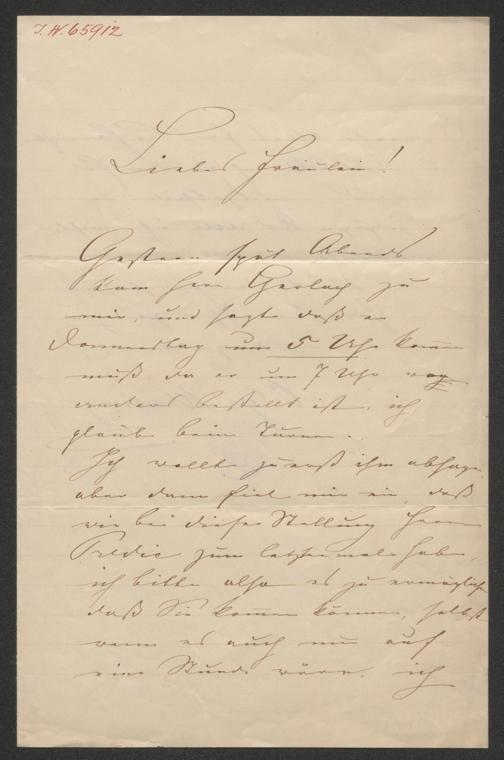 I.N. 65912
Liebes Fräulein!
Gestern spät Abends
kam Herr Gerlach zu
mir, und sagte daß er
Donnerstag um 5 Uhr komen
muß da er um 7 Uhr
anders bestellt ist, ich
glaube beim Turnen.
Ich wollte zuerst ihm absagen
aber dann fiel mir ein, daß
wir bei dieser Stellung Herrn
Predic zum letztenmale haben,
ich bitte also es zu ermöglichen
daß Sie komen könen, selbst
wenn es auch nur auf
eine Stunde wäre, ich